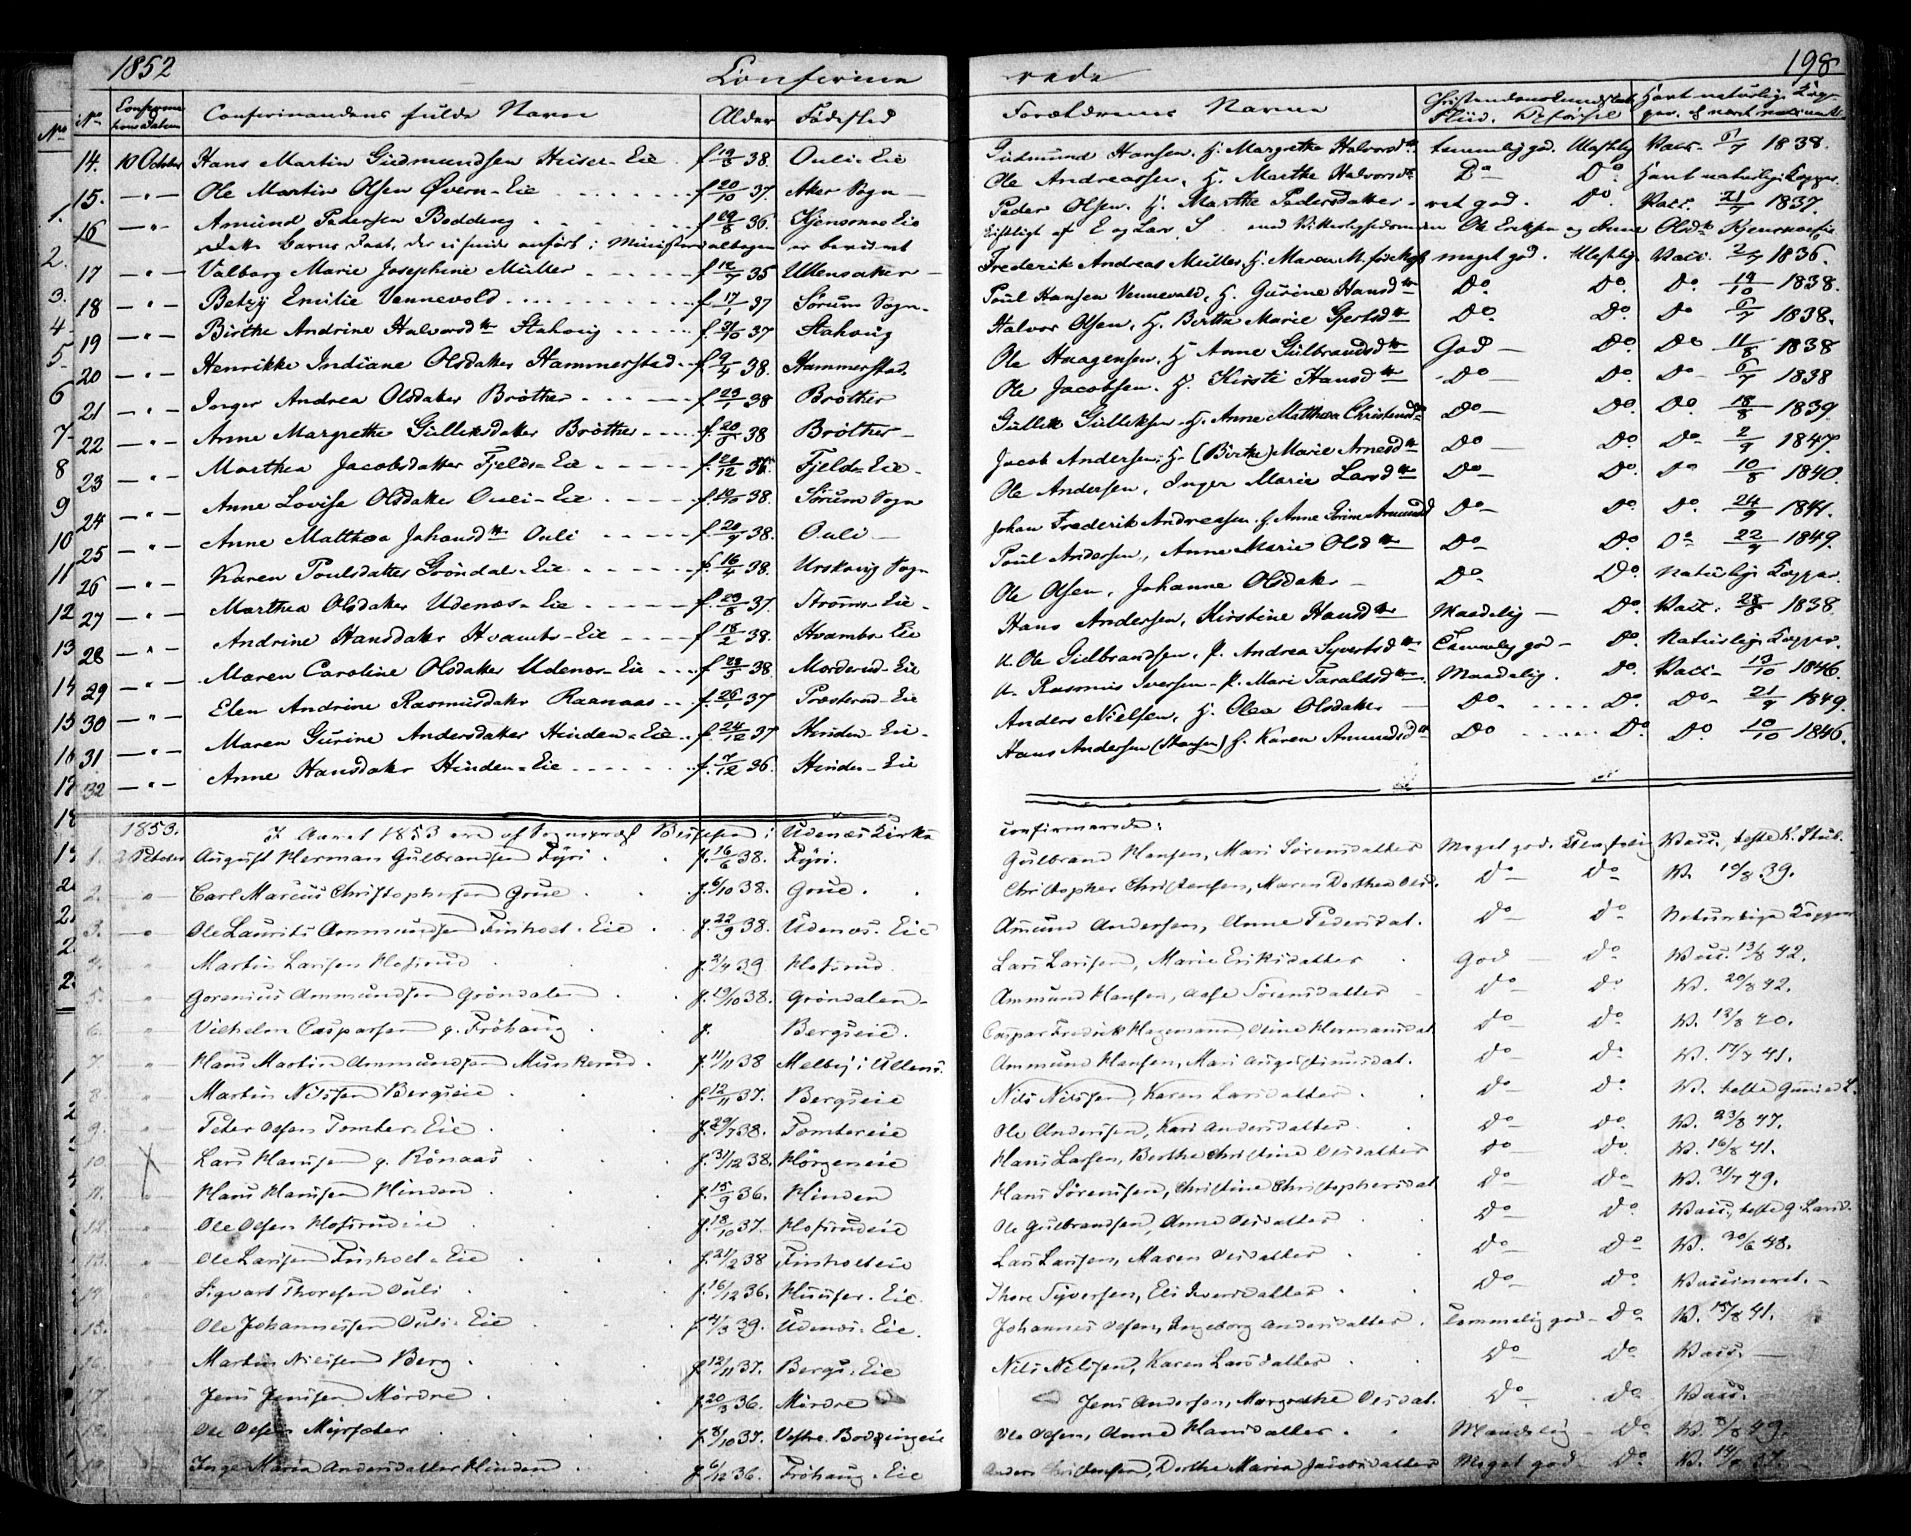 1852 Confirme rede 198
No. Confirma tions Datum Confirmandens fulde Navn Alder Fødested Forældrenes Navne Christendomskundskab Fliid. Opførsel Havt naturlige Kop per. el. vaccineret
14. 10 October Hans Martin Gudmundsen Eie f. 19/8 38. Ouli-Eie Gudmund Hansen. H. Margrethe Halvorsdtr temmelig god. Vacc. 1838.
15. — " — Ole Martin Olsen Øvern-Eie f. 20/10 37. Aker Sogn Ole Andreassen, H. Marthe Halvorsdtr Do Do. Havt naturlige Kopper.
16 — " — Amund Pedersen Bodding f. 29/8 36. Eie Peder Olsen. H. Marthe Pedersdatter ret god. Do. Vacc. 21/7 1837.
17 — " — Valborg Marie Josephine Müller f. 12/7 35 Ullensaker Frederik Andreas Müller, H. Maren M. meget god. Vacc. 2/7 1836.
18 — " — Betzy Emilie Vennevold f. 17/1 37 Sørum Sogn. Poul Hansen Vennevald, H. Gurine Hansdtr Do Do. Do 19/10 1838.
19 — " — Birthe Andrine Halvorsdtr Stahoug f. 31/10 37 Stahoug Halvor Olsen, H. Birtha Marie Gjertsdtr Do Do. Do 6/7 1838.
20 — " — Henrikke Indiane Olsdatter Hammerstad f. 9/4 38. Hammerstad. Ole Haagensen, H. Anne Gulbrandsdtr God Do. Do 11/8 1838
21 — " — Inger Andrea Olsdatter Brøther f. 23/1 38 Brøther Ole Jacobsen. H. Kirsti Hansdtr Do Do. Do 6/7 1838
22 — " — Anne Margrethe Gulliksdatter Brøther f. 20/5 38 Brøther Gullik Gulliksen. H. Anne Matthea Do Do. Do. 18/8 1839.
23 — " — Marthea Jacobsdatter Fjelds-Eie f. 20/12 36. Fjelds-Eie. Jacob Andersen, H. (Birthe) Marie Arnesdtr Do Do. Do. 2/9 1847.
24 — " — Anne Lovise Olsdatter Ouli-Eie f. 38. Sørum Sogn Ole Andersen, Inger Marie Larsdtr Do Do. Do 10/8 1840.
25 — " — Anne Matthea Johansdtr Ouli f. 20/7 38. Ouli Johan Frederik Andreasen. H. Anne Do Do. Do. 24/9 1841.
26 — " — Karen Poulsdatter Grøndal-Eie f. 16/4 38. Urskoug Sogn Poul Andersen, Anne Marie Olsdtr Do Do. Do 22/7 1849.
27 — " — Marthea Olsdatter Udenæs-Eie f. 29/5 37. Strøms-Eie. Ole Olsen, Johanne Olsdatter Do Do. Naturlige Kopper.
28 — " — Andrine Hansdatter Hvambs-Eie f. 18/2 38. Hvambs Eie Hans Andersen, Kirstine Hansdtr Maadelig Do. Vacc. 28/8 1838.
29 — " — Maren Caroline Olsdatter Udenæs-Eie f. 23/5 38. Eie U. Ole Gulbrandsen, P. Andrea Syvertsdtr Temmelig god Do. Naturlige Kopper.
30 — " — Elen Andrine Rasmusdatter Raanaas f. 26/1 37 Eie U. Rasmus Iversen. P. Mari Taraldsdtr Maadelig. Do. Vacc. 13/10 1846.
31 — " — Maren Gurine Andersdatter Hinden-Eie f. 24/12 37 Hinden-Eie. Anders Nielsen, H. Olea Olsdatter Do Do. Do 21/7 1849.
32 — " — Anne Hansdatter Hinden-Eie f. 7/12 36. Hinden-Eie Hans Andersen (Hansen) H. Karen Amundsdtr Do Do. Do. 10/10 1846.
1853. I Aaret 1853 ere af Sognepræst i Udenæs Kirke confirmerede:
1. 2 October August Herman Gulbrandsen Fyri f. 16/6 38. Fyri. Gulbrand Hansen, Mari Sørensdatter Meget god. Vacc.
2. " Carl Marcus Christophersen Grue f. 6/10 38. Grue. Christopher Christensen, Maren Dorthea Do Do V. 39.
3. " Ole Laurits Ammundsen Finholt-Eie f. 22/9 38. Udenæs-Eie Amund Andersen, Anne Pedersdat. Do Do Naturlige Kopper
4. " Martin Larsen Hofsrud f. 39 Hofsrud Lars Larsen, Marie Eriksdatter God Do Vacc. 13/8 42.
5. " Gorenius Ammundsen Grøndalen f. 19/10 38. Grøndalen Ammund Hansen, Aase Sørensdatter Do Do V. 20/8 42.
6. " Vilhelm Casparsen g. Frøhaug f. Bergseie. Caspar Fredrik Hagemann, Oline Hermansdat Do Do V. 12/8 40.
7. " Hans Martin Ammundsen Munkerud f. 11/11 38 Melby i Ullens. Ammund Hansen, Mari Augustinusdat. Do Do V. 17/7 41.
8. " Martin Nilsen Bergseie f. 12/11 37. Bergseie Nils Nilsen, Karen Larsdatter Do Do V.
9. " Peter Olsen Tomter-Eie f. 29/7 38. Tomtereie Ole Andersen, Kari Andersdatter Do Do V. 23/8 47.
10. " Lars Hansen g. Rönaas f. 31/12 38. Hørgeneie Hans Larsen, Berthe Christine Olsdatter Do Do V. 16/8 41.
11. " Hans Hansen Hinden f. 15/9 36. Hinden Hans Sørensen, Christine Christophersdat Do Do V. 31/7 49.
12. " Ole Olsen Hofsrudeie f. 18/10 37. Hofsrudeie Ole Gulbrandsen, Anne Olsdatter Do Do Vacc.
13. " Ole Larsen Finholt-Eie f. 21/2 38 Finholteie Lars Larsen, Maren Olsdatter Do Do V. 30/6 48.
14. " Sigvart Thoresen Ouli f. 16/12 36. Eie Thore Syversen, Eli Iversdatter Do Do Vaccineret.
15. " Ole Johannessen Ouli-Eie f. 39. Udenæs-Eie. Johannes Olsen, Ingeborg Andersdatter Temmelig god Do V. 15/8 41.
16. " Martin Nielsen Berg f. 12/11 37. Bergs-Eie Nils Nilsen, Karen Larsdatter Do Do Vacc.
17. " Jens Jensen Mördre f. 20/3 36. Mördre Jens Andersen, Margrethe Olsdat. Do Do Vacc.
18. " Ole Olsen f. 37. Vestre Ole Olsen, Anne Hansdatter Maadelig Do V. 49.
19. Inger Maria Andersdatter Hinden f. 6/12 36. Frøhaug-Eie Anders Christensen, Dorthe Maria Jacobsdatter Meget god Do V.